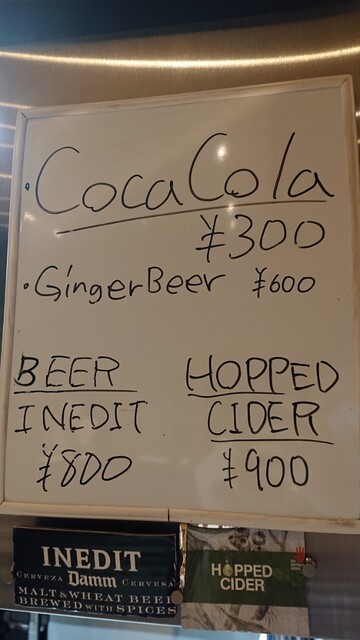 · CocaCola
¥300
· GingerBeer ¥600
BEER
INEDIT
¥800
HOPPED
CIDER
¥900
INEDIT
CERVEZA Damm CERVESA
MALT & WHEAT BEER
BREWED WITH SPICES
HOPPED
CIDER